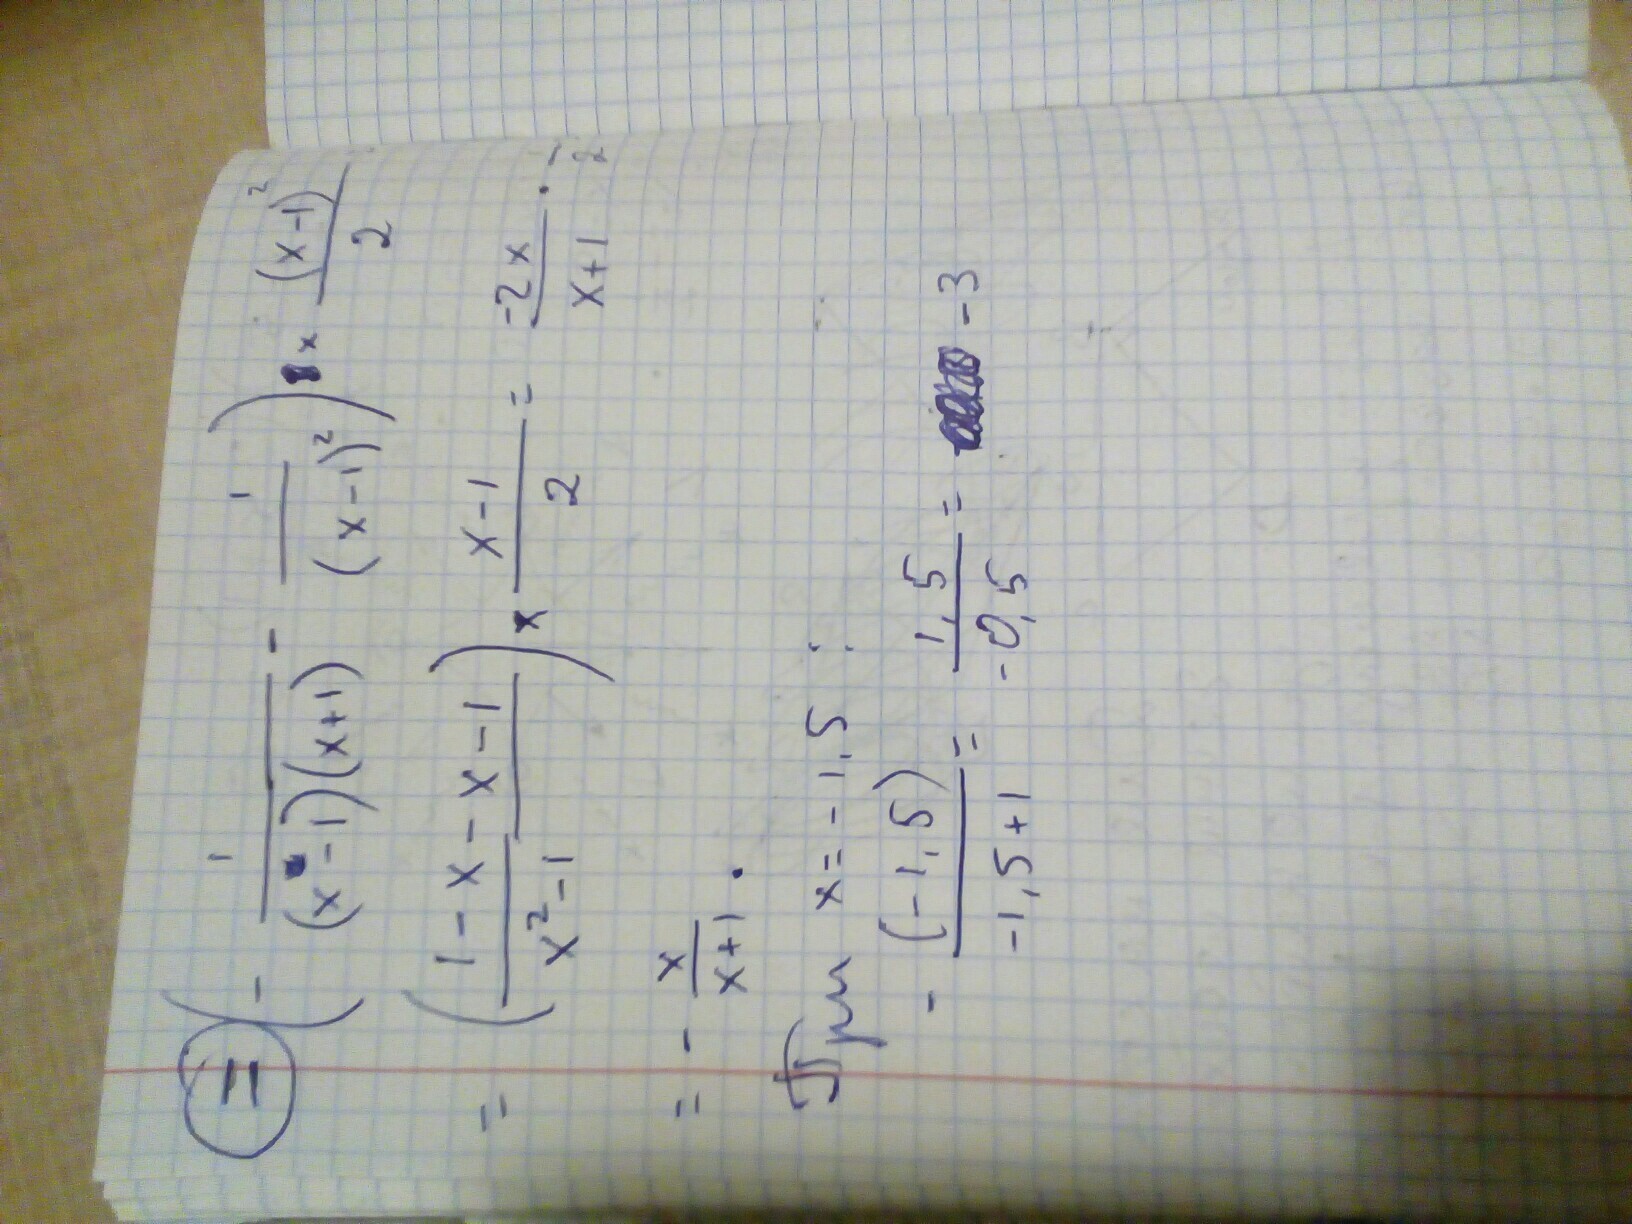 = (- 1/((x-1)(x+1)) - 1/(x-1)²) × (x-1)²/2
= ((1-x-x-1)/(x²-1)) × (x-1)/2 = -2x/(x+1) ·
= - x/(x+1).
При x = -1,5 :
- (-1,5)/(-1,5+1) = 1,5/-0,5 = -3